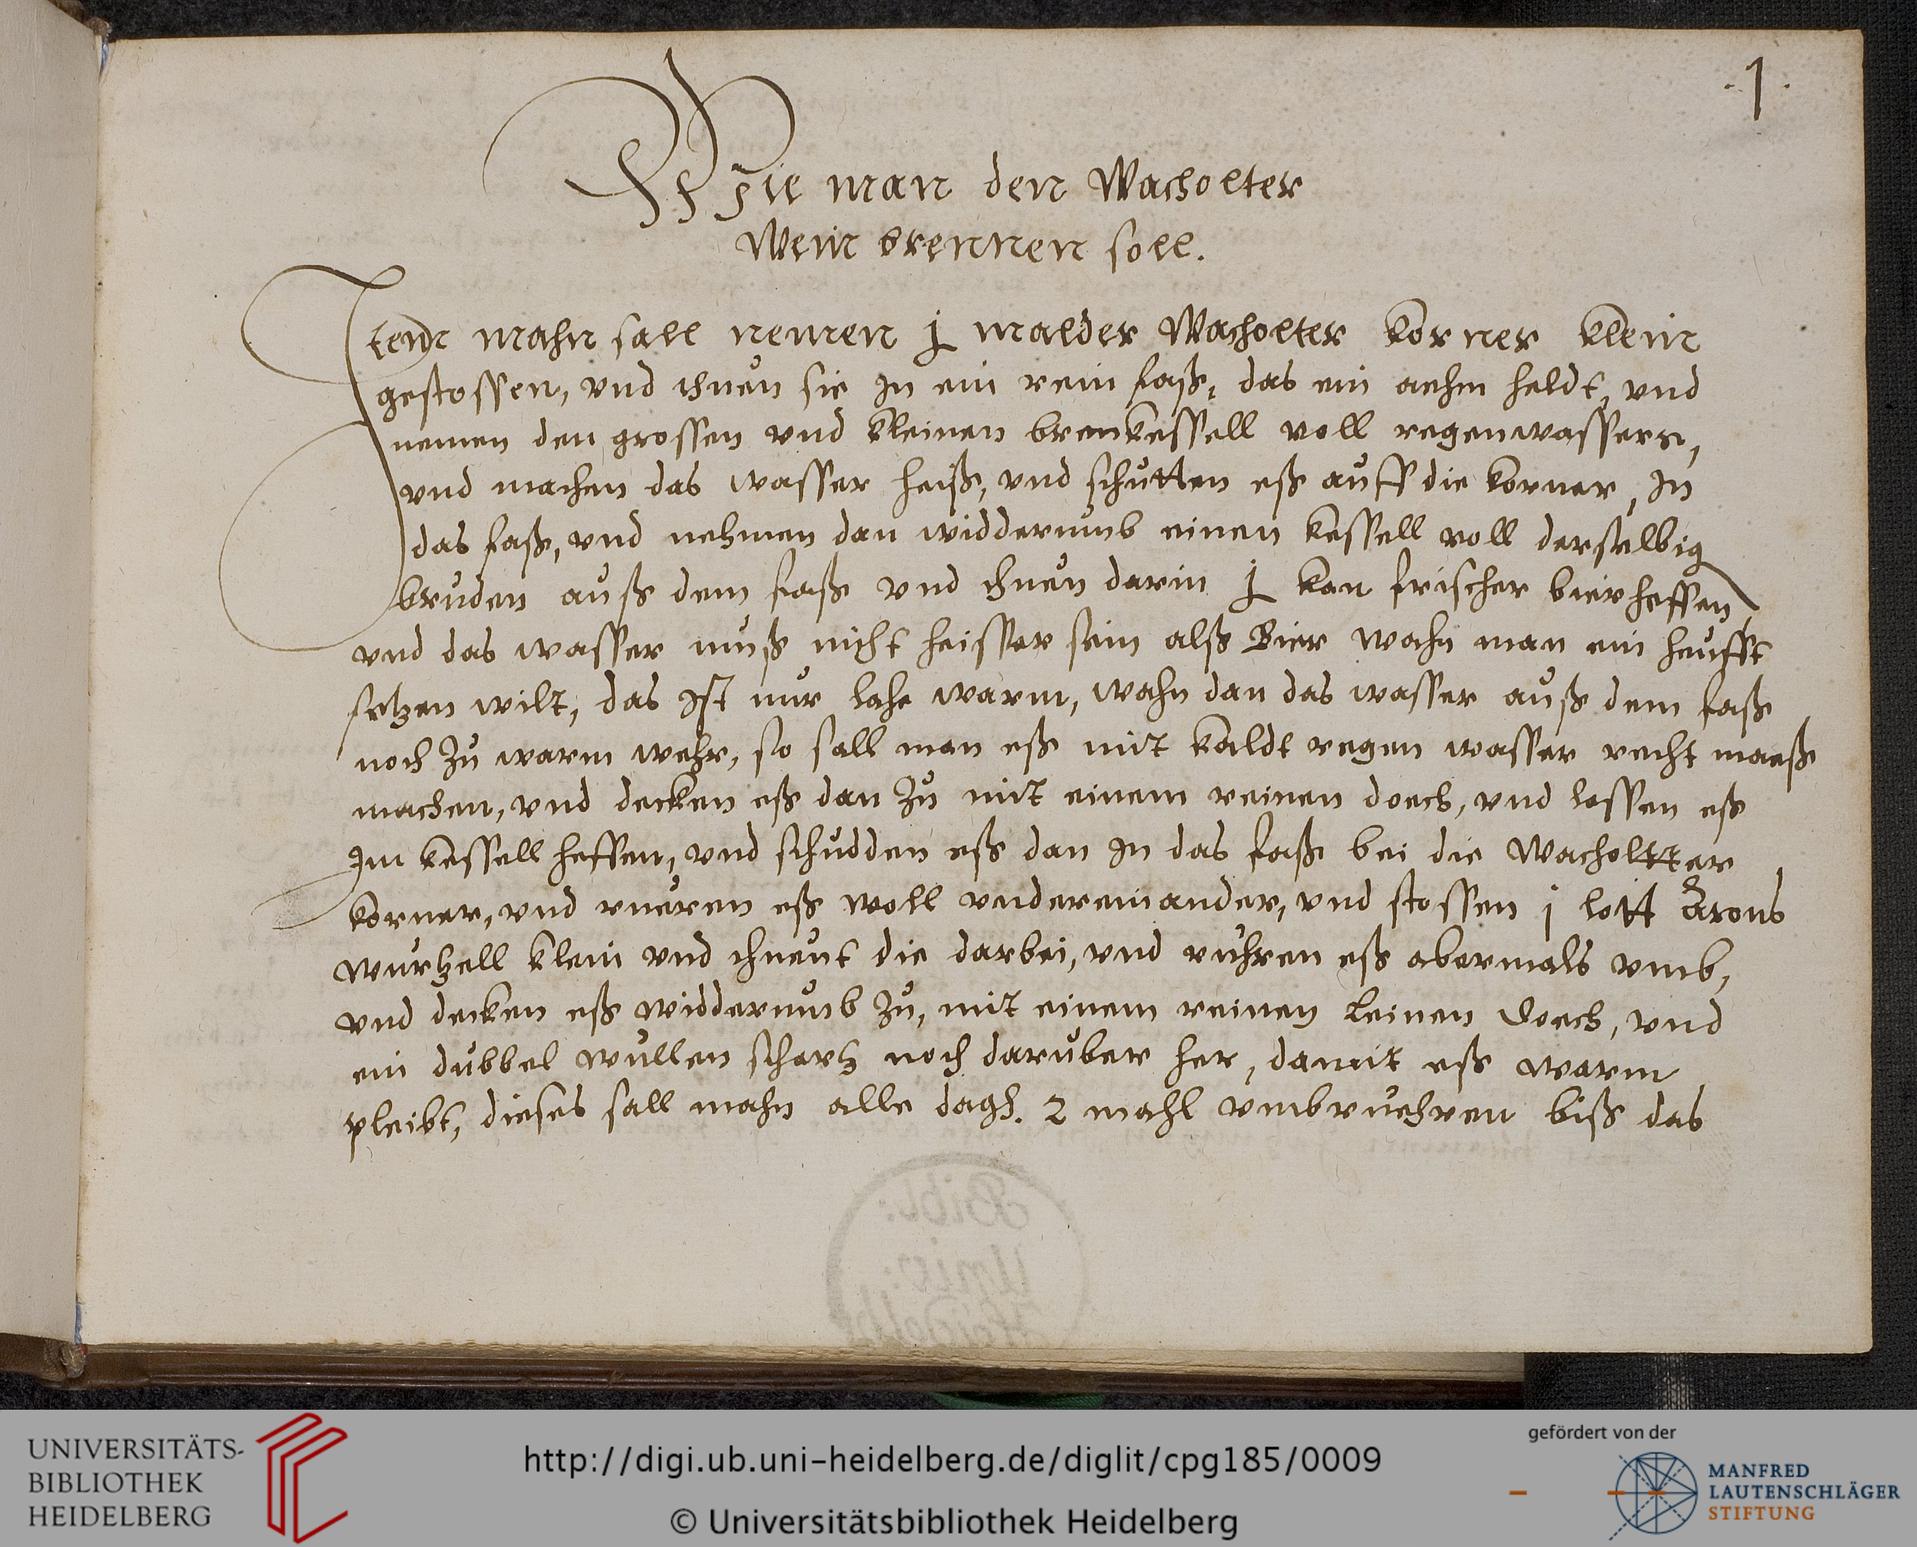 .1.
Wie man den Wacholter
Wein brennen soll.
Item mahn sall nemen j malder Wacholter korner klein
gestossen, vnd thuen sie In ein rein faß, das ein aehm heldt, vnd
nemen den grossen vnd kleinen brenkessell voll regenwassers,
vnd machen das wasser heiß, vnd schutten eß auff die korner, In
das faß, vnd nehmen dan widderumb einen kessell voll derselbig
bruden auß dem faß vnd thuen darin j kan frischer bierheffen
vnd das wasser muß nicht heisser sein alß Bier wahn man ein heufft
setzen wilt, das Ist nur lahe warm, wahn dan das wasser auß dem faß
noch zu warm wehr, so sall man eß mit kaldt regen wasser recht maeß
machen, vnd decken eß dan zu mit einem reinen doech, vnd lossen eß
Im kessell heffen, vnd schudden eß dan In das faß bei die Wacholtter
korner, vnd rueren eß woll vndereinander, vnd stossen j lott Arons
wurtzell klein vnd thuent die darbei, vnd ruhren eß abermals vmb,
vnd decken eß widderumb zu, mit einem reinen leinen doech, vnd
ein dubbel wullen schartz noch daruber her, damit eß warm
pleibt, dieses sall mahn alle dagh. 2 mahl vmbruehren biß das
Bibl:
Univ:
Heidelb
UNIVERSITÄTS-
BIBLIOTHEK
HEIDELBERG
http://digi.ub.uni-heidelberg.de/diglit/cpg185/0009
© Universitätsbibliothek Heidelberg
gefördert von der
MANFRED
LAUTENSCHLÄGER
STIFTUNG